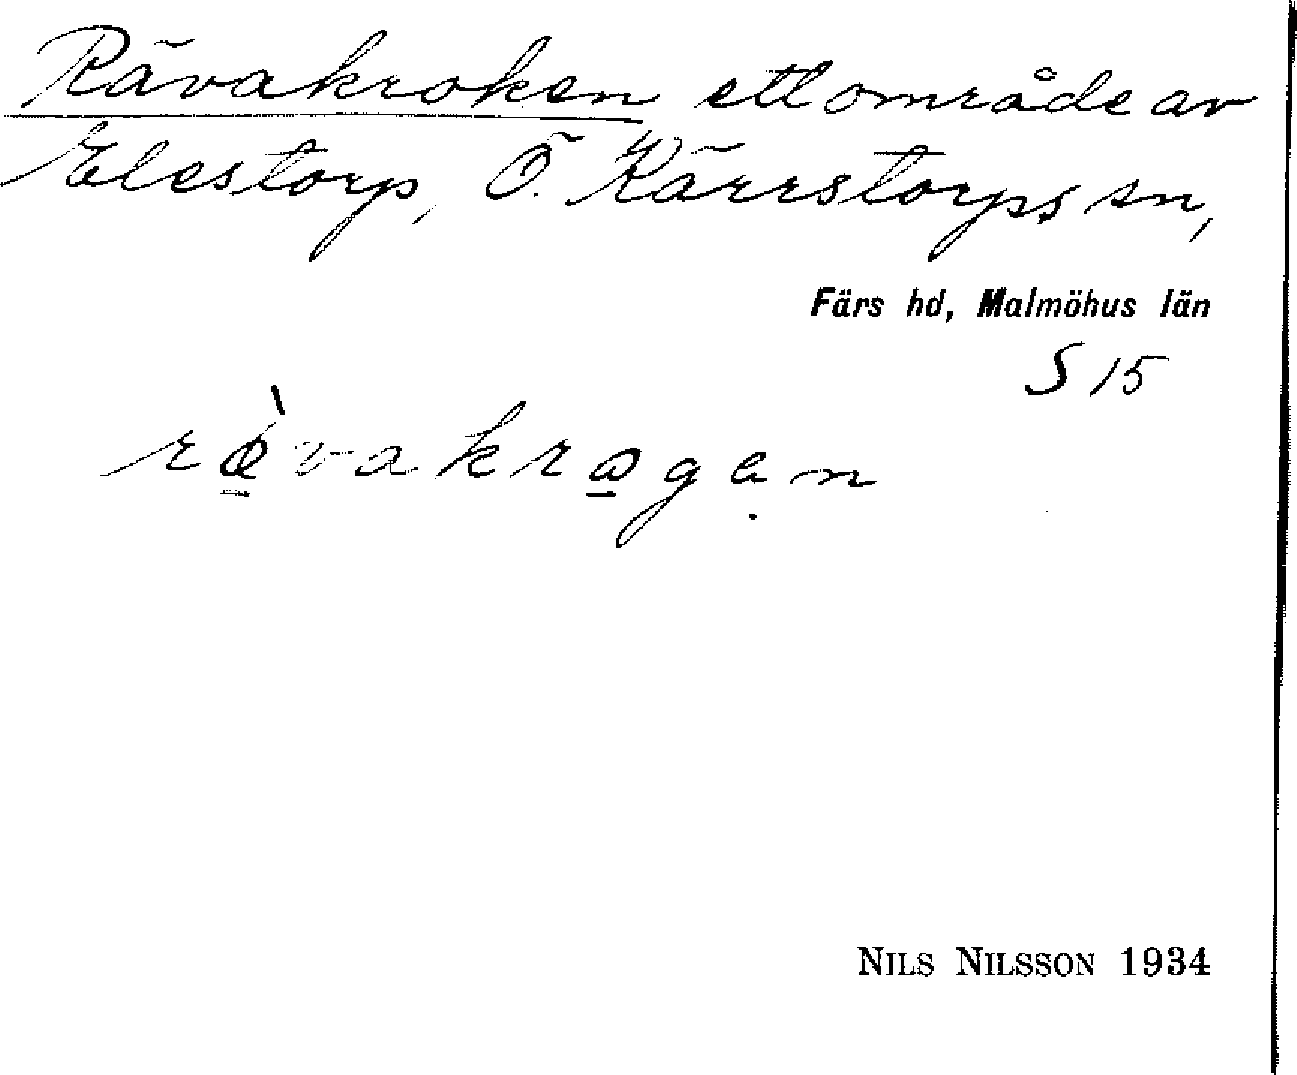 Rävakroken ett område av
Elestorp, Ö. Kärrstorps sn,
Färs hd, Malmöhus län
S 15
rævakrogen
NILS NILSSON 1934